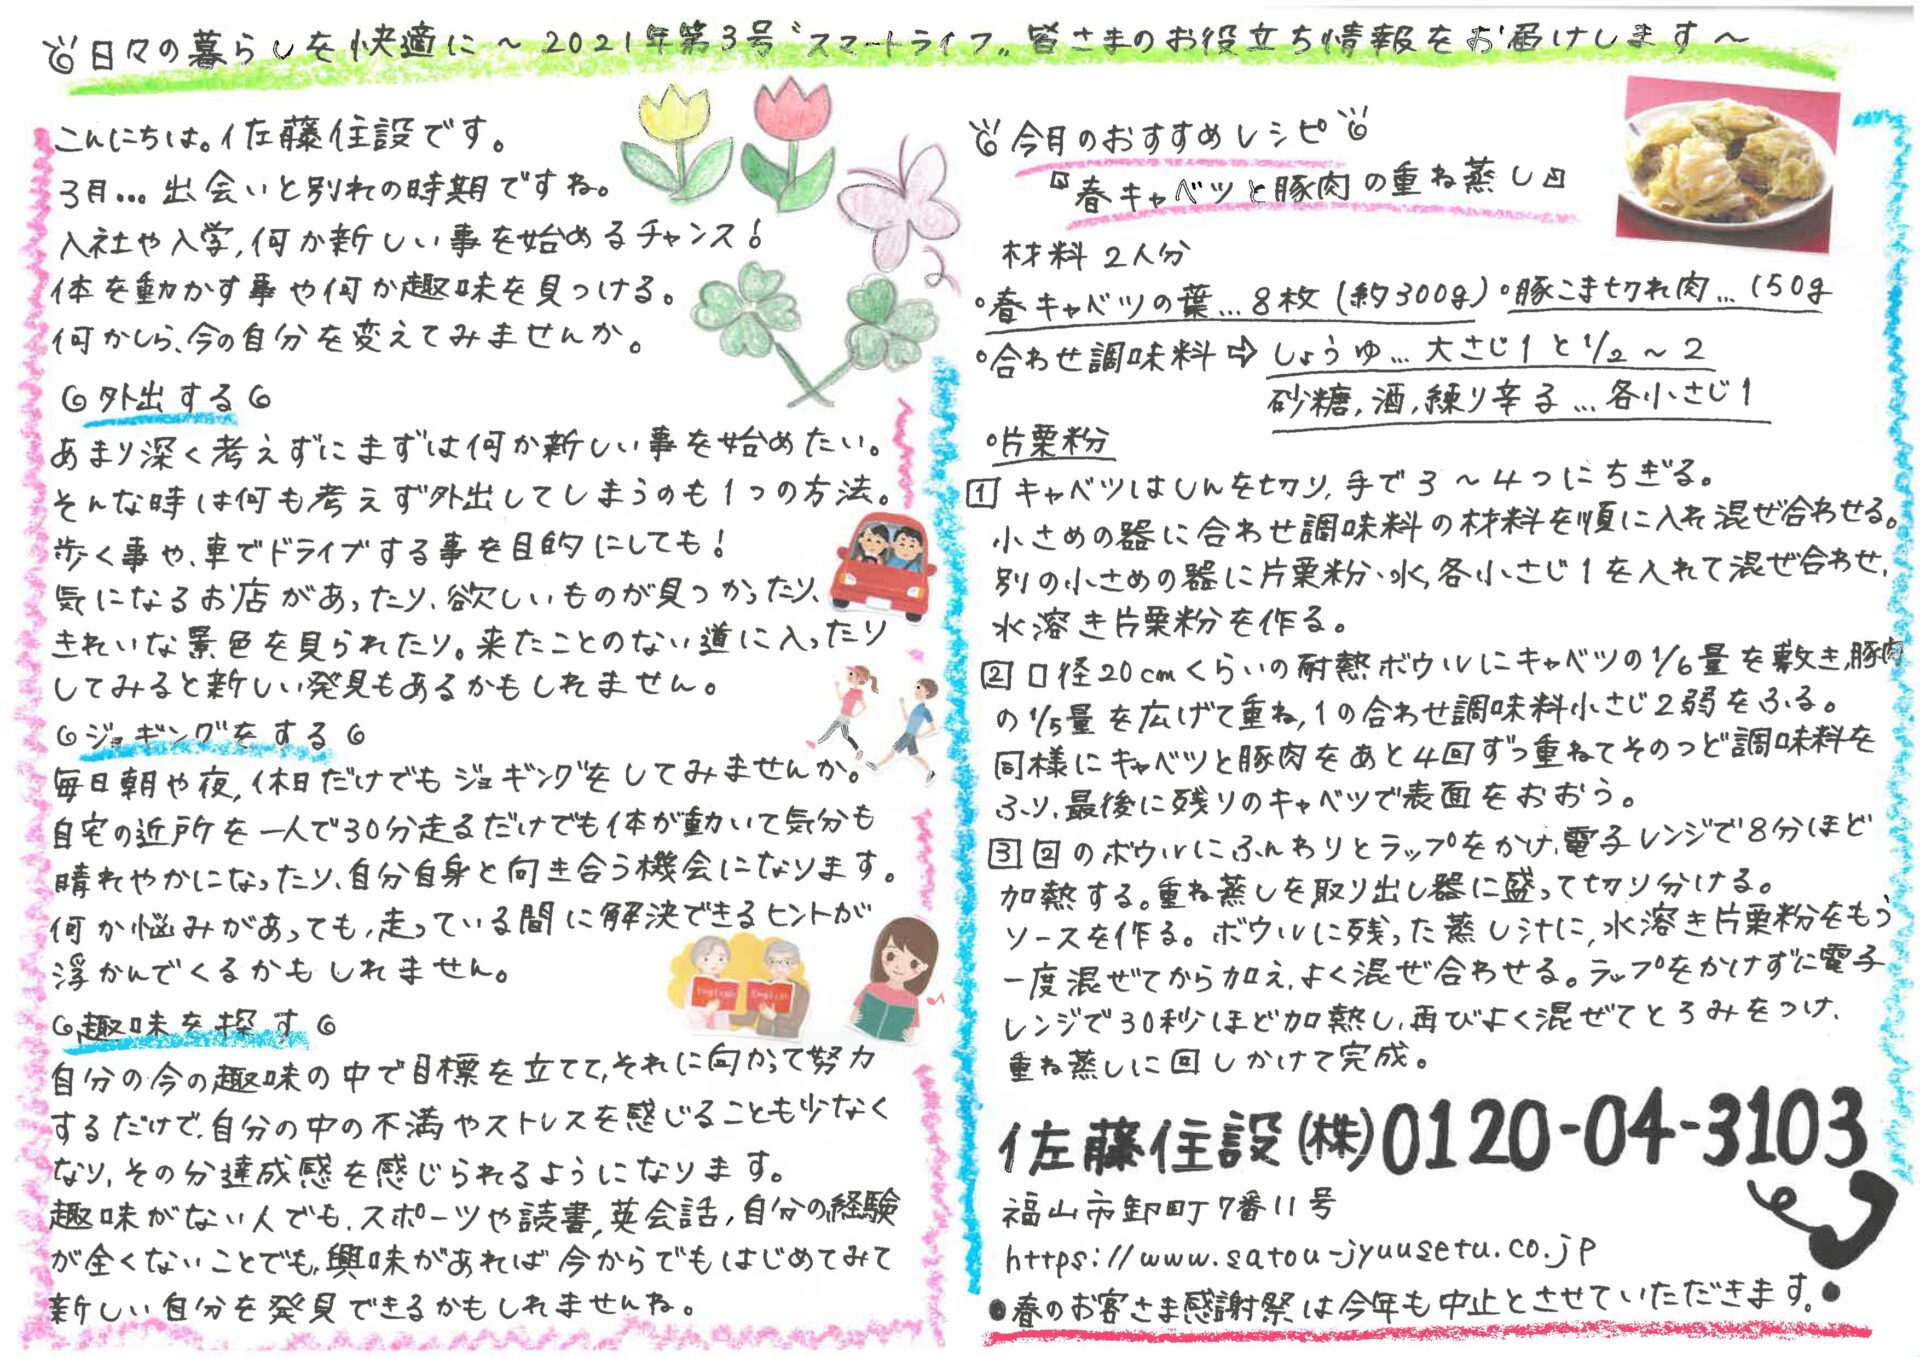 日々の暮らしを快適に～2021年第3号〝スマートライフ〟皆さまのお役立ち情報をお届けします～
こんにちは。佐藤住設です。
3月…出会いと別れの時期ですね。
入社や入学,何か新しい事を始めるチャンス!
体を動かす事や何か趣味を見つける。
何かしら、今の自分を変えてみませんか。
外出する
あまり深く考えずにまずは何か新しい事を始めたい。
そんな時は何も考えず外出してしまうのも1つの方法。
歩く事や、車でドライブする事を目的にしても!
気になるお店があったり、欲しいものが見つかったり、
きれいな景色を見られたり。来たことのない道に入ったり
してみると新しい発見もあるかもしれません。
ジョギングをする
毎日朝や夜,休日だけでもジョギングをしてみませんか。
自宅の近所を一人で30分走るだけでも体が動いて気分も
晴れやかになったり、自分自身と向き合う機会になります。
何か悩みがあっても、走っている間に解決できるヒントが
浮かんでくるかもしれません。
English English
趣味を探す
自分の今の趣味の中で目標を立てて、それに向かって努力
するだけで、自分の中の不満やストレスを感じることも少なく
なり、その分達成感を感じられるようになります。
趣味がない人でも、スポーツや読書,英会話,自分の経験
が全くないことでも、興味があれば今からでもはじめてみて
新しい自分を発見できるかもしれませんね。
今月のおすすめレシピ
『春キャベツと豚肉の重ね蒸し』
材料 2人分
・春キャベツの葉…8枚(約300g)・豚こま切れ肉…150g
・合わせ調味料⇨しょうゆ…大さじ1と1/2～2
砂糖,酒,練り辛子…各小さじ1
・片栗粉
1 キャベツはしんを切り、手で3～4つにちぎる。
小さめの器に合わせ調味料の材料を順に入れ混ぜ合わせる。
別の小さめの器に片栗粉・水,各小さじ1を入れて混ぜ合わせ、
水溶き片栗粉を作る。
2 口径20cmくらいの耐熱ボウルにキャベツの1/6量を敷き、豚肉
の1/5量を広げて重ね,1の合わせ調味料小さじ2弱をふる。
同様にキャベツと豚肉をあと4回ずつ重ねてそのつど調味料を
ふり、最後に残りのキャベツで表面をおおう。
3 2のボウルにふんわりとラップをかけ、電子レンジで8分ほど
加熱する。重ね蒸しを取り出し器に盛って切り分ける。
ソースを作る。ボウルに残った蒸し汁に,水溶き片栗粉をもう
一度混ぜてから加え、よく混ぜ合わせる。ラップをかけずに電子
レンジで30秒ほど加熱し、再びよく混ぜてとろみをつけ、
重ね蒸しに回しかけて完成。
佐藤住設(株)0120-04-3103
福山市卸町7番11号
https://www.satou-jyuusetu.co.jp
●春のお客さま感謝祭は今年も中止とさせていただきます。●